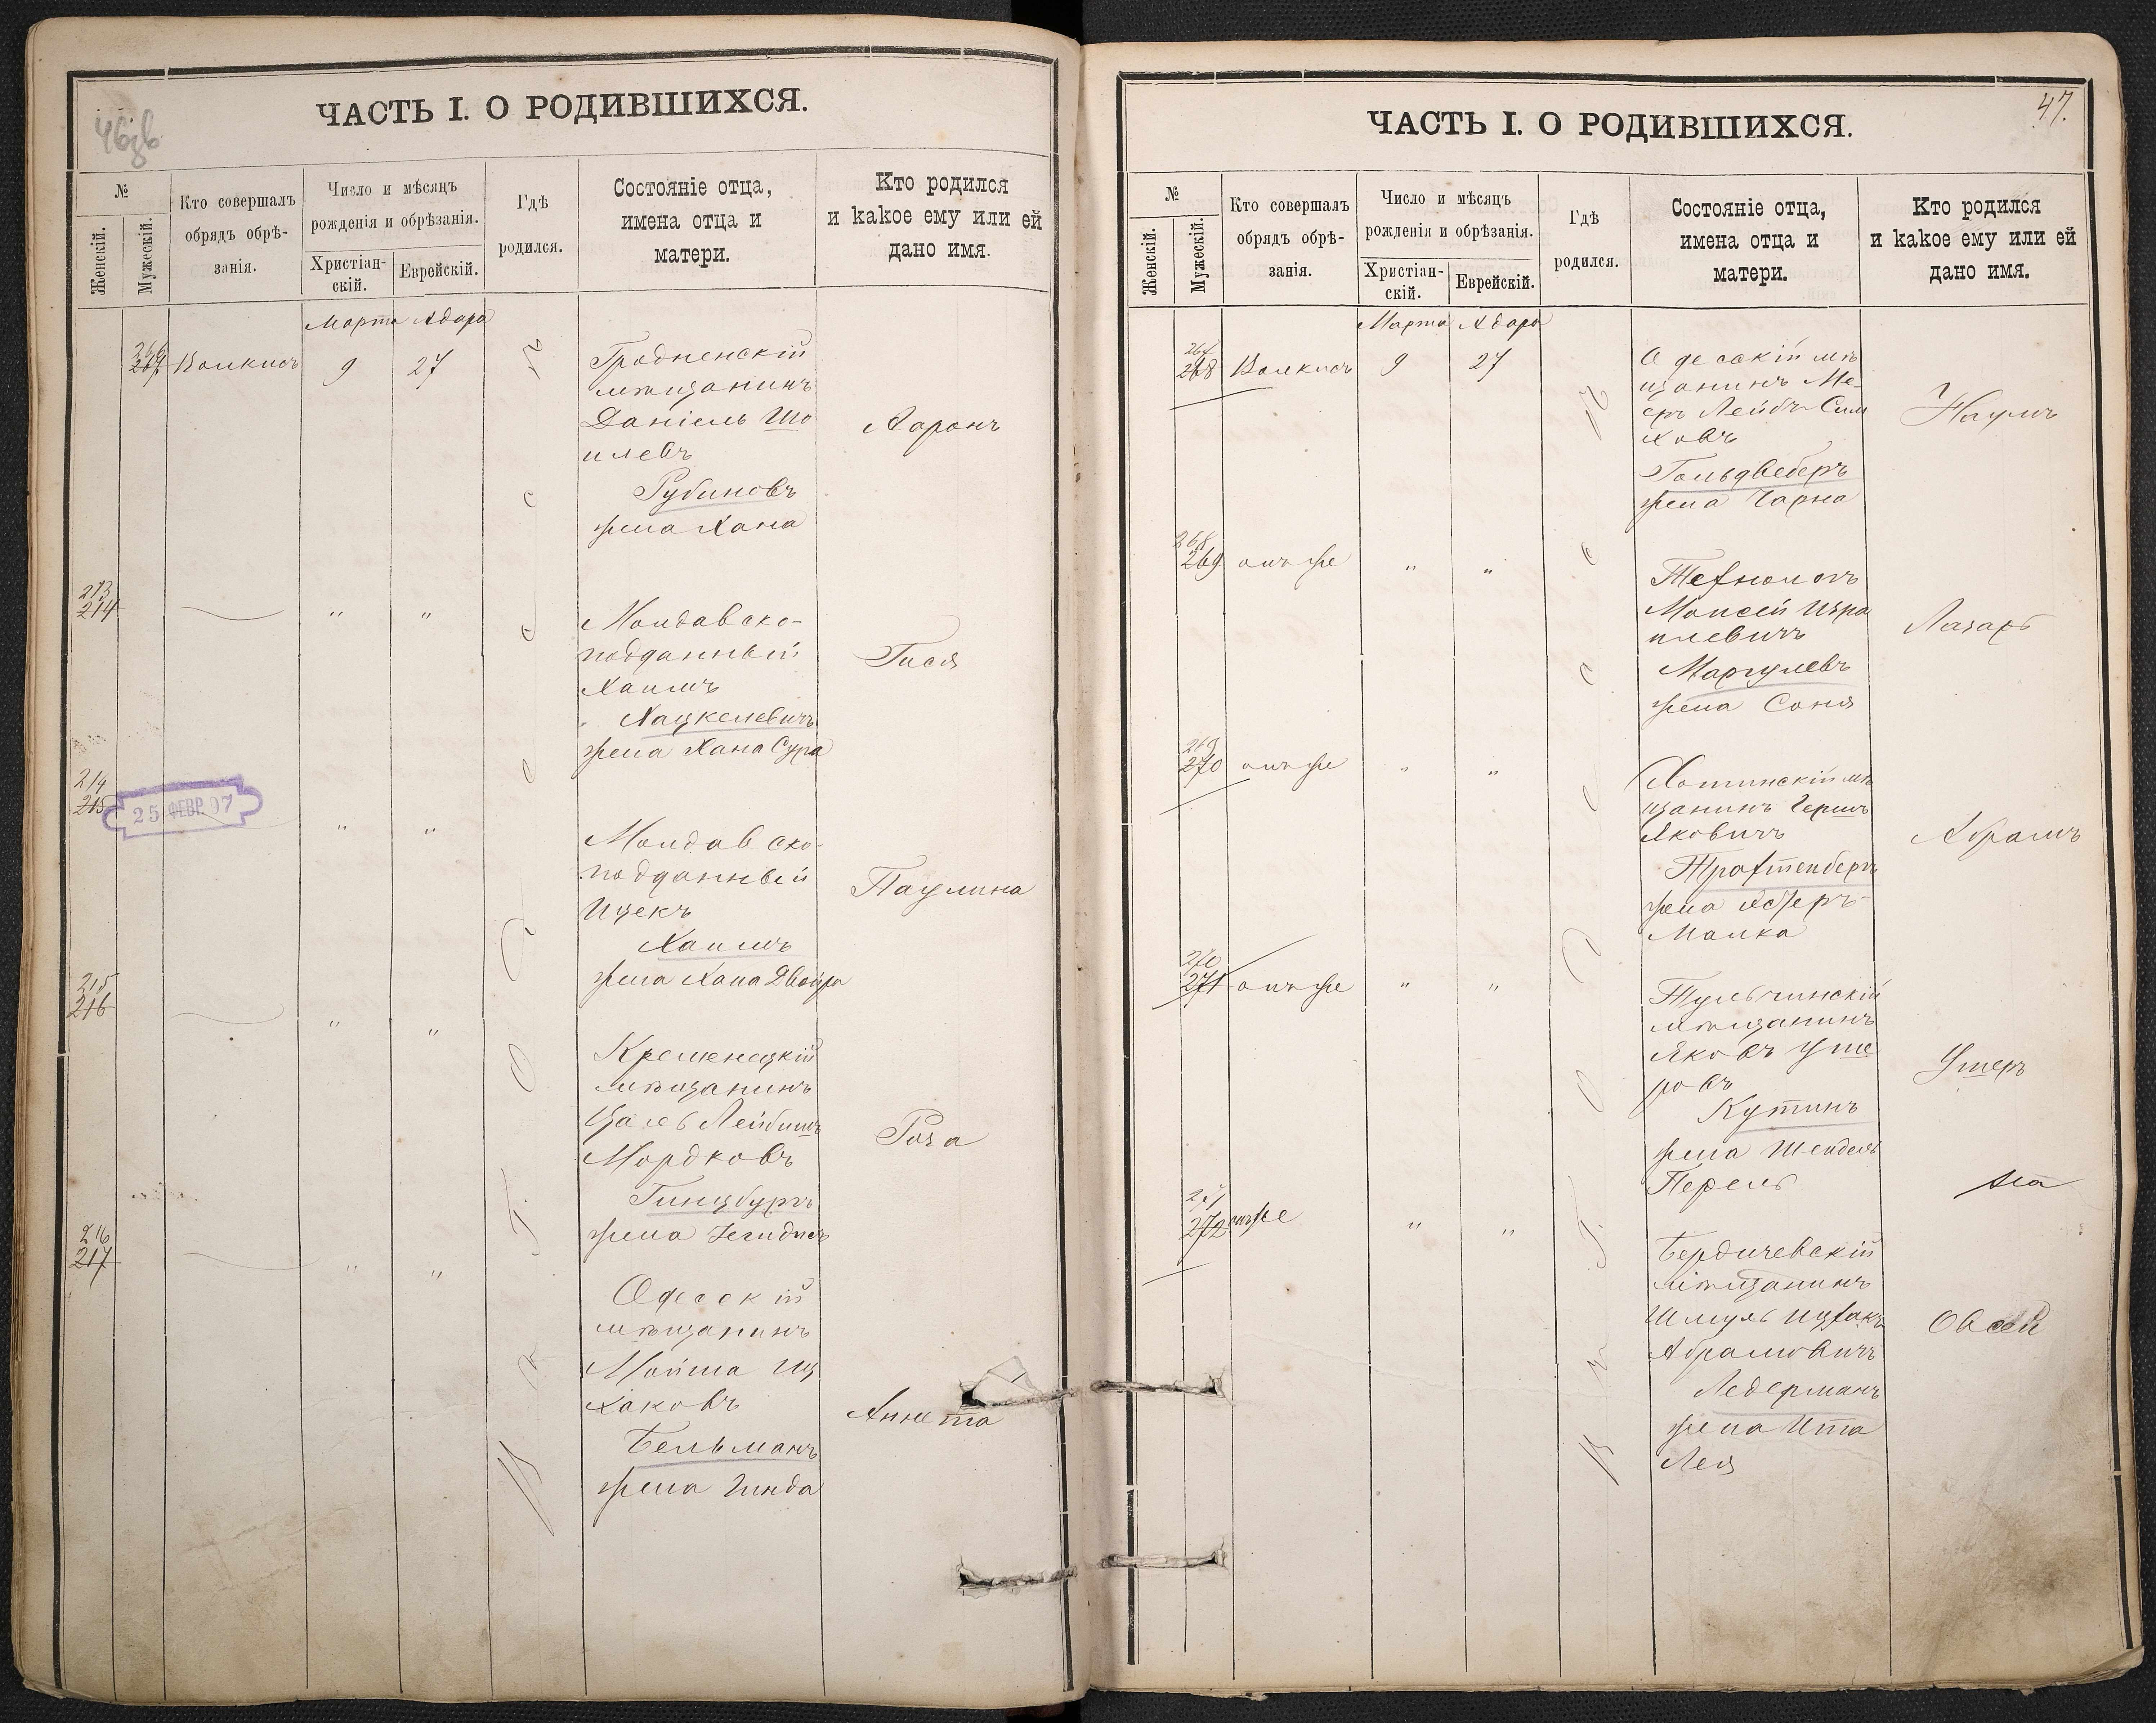 ЧАСТЬ I. О РОДИВШИХСЯ.
№
Женскій.
Мужескій.
Кто совершалъ
обрядъ обрѣ-
занія.
Число и мѣсяцъ
рожденія и обрѣзанія.
Христіан-
скій.
Еврейскій.
Гдѣ
родился.
Состояніе отца,
имена отца и
матери.
Кто родился
и какое ему или ей
дано имя.
Марта Адара
266
267 Волкисъ 9 27
Гродненскій
мѣщанинъ
Даніель Шо
илевъ
Рубиновъ
жена Хана
Ааронъ
213
214 " "
Молдавско-
подданный
Хаимъ
Хацкелевичъ
жена Хана Сура
Гися
214
215 " "
25 ФЕВР. 07
Молдавско-
подданный
Ицекъ
Хаимъ
жена Хана Двойра
Паулина
215
216 " "
Кременецкій
мѣщанинъ
Лейбишъ
Мордковъ
Гинцбургъ
жена
Роза
216
217 " "
Одесскій
мѣщанинъ
Мойша Иц
хаковъ
Бельманъ
жена Гинда
Аннета
Въ г. Одессѣ
ЧАСТЬ I. О РОДИВШИХСЯ.
47.
№
Женскій.
Мужескій.
Кто совершалъ
обрядъ обрѣ-
занія.
Число и мѣсяцъ
рожденія и обрѣзанія.
Христіан-
скій.
Еврейскій.
Гдѣ
родился.
Состояніе отца,
имена отца и
матери.
Кто родился
и какое ему или ей
дано имя.
Марта Адара
267
268 Волкисъ 9 27
Одесскій мѣ
щанинъ Ме-
еръ Лейбъ Сим
ховъ
Гольдвеберъ
жена Чарна
Наумъ
268
269 онъ же " "
Технологъ
Моисей Изра
илевичъ
Маргулевъ
жена Соня
Лазарь
269
270 онъ же " "
Хотинскій мѣ
щанинъ Гершъ
Яковичъ
Трахтенбергъ
жена
Малка
Абрамъ
270
271 онъ же " "
Тульчинскій
мѣщанинъ
Яковъ Уше
ровъ
Кутинъ
жена Шейдель
Перель
Ушеръ
271
272 онъ же " "
Бердичевскій
мѣщанинъ
Шмуль Ицхакъ
Абрамовичъ
Ледерманъ
жена Ита
Лея
Овсей
Въ г. Одессѣ